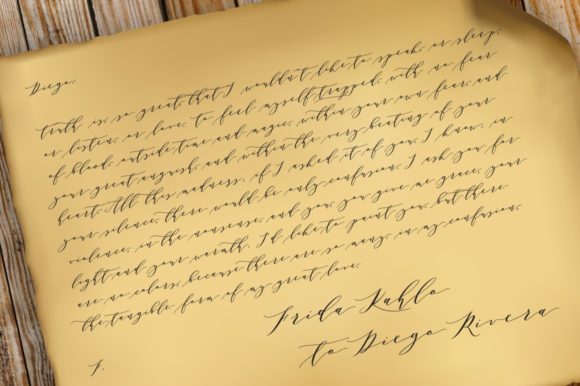 Diego:
truth is, so great, that I wouldn't like to speak, or sleep,
or listen, or love, to feel myself trapped, with no fear
of blood, outside time and magic, within your own fear, and
your great anguish, and within the very beating of your
heart. All this madness, if I asked it of you, I know, in
your silence, there would be only confusion. I ask you for
violence, in the nonsense, and you, you give me grace, your
light and your warmth. I'd like to paint you, but there
are no colors, because there are so many, in my confusion,
the tangible form of my great love.
Frida Kahlo
to Diego Rivera
F.